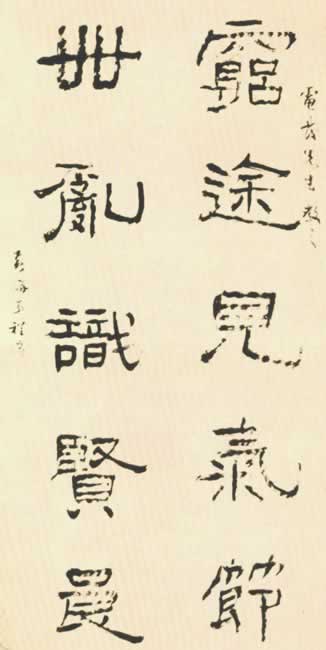 先生教之
窮途見氣節
世亂識賢良